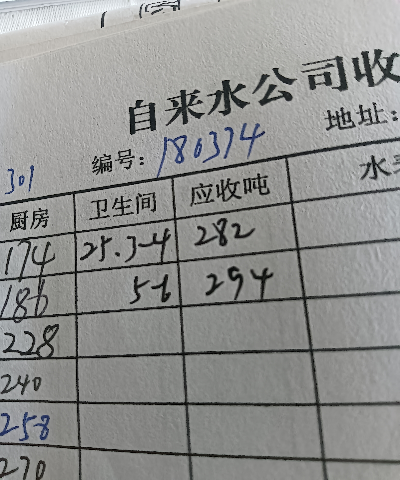 自来水公司收
301 编号: 180374 地址:
厨房 卫生间 应收吨 水
174 25.3-4 282
186 5-6 294
228
240
258
270